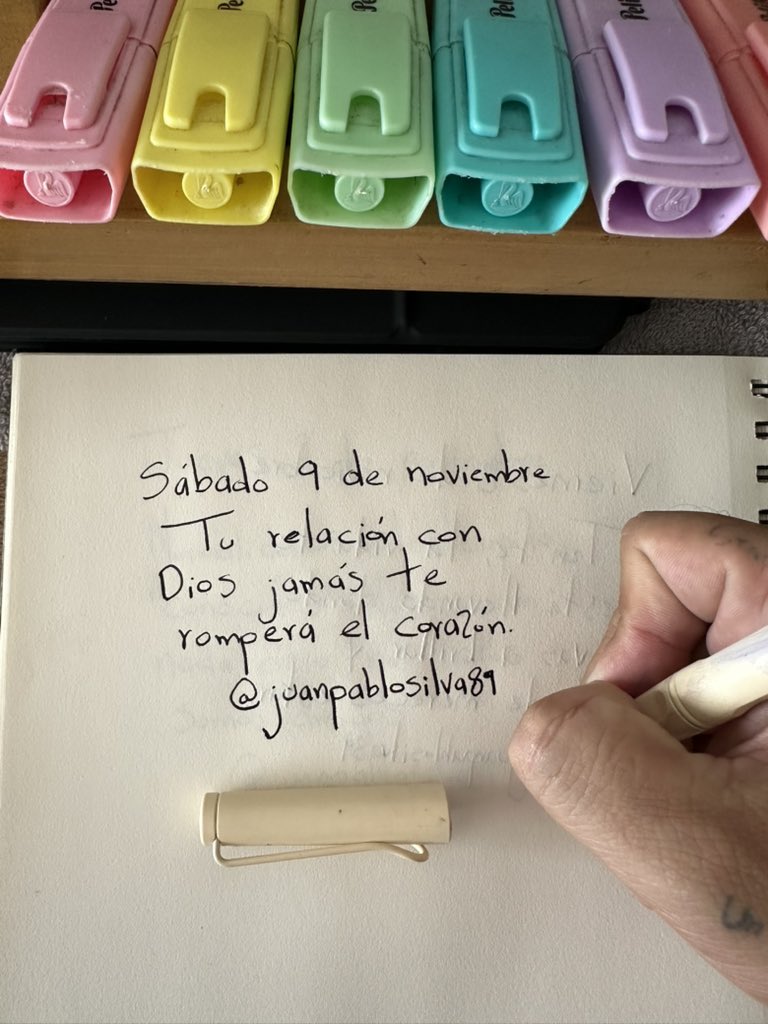 Pe
Pe
Pe
Peli
Peli
Sábado 9 de noviembre
Tu relación con
Dios jamás te
romperá el corazón.
@juanpablosilva89
Un